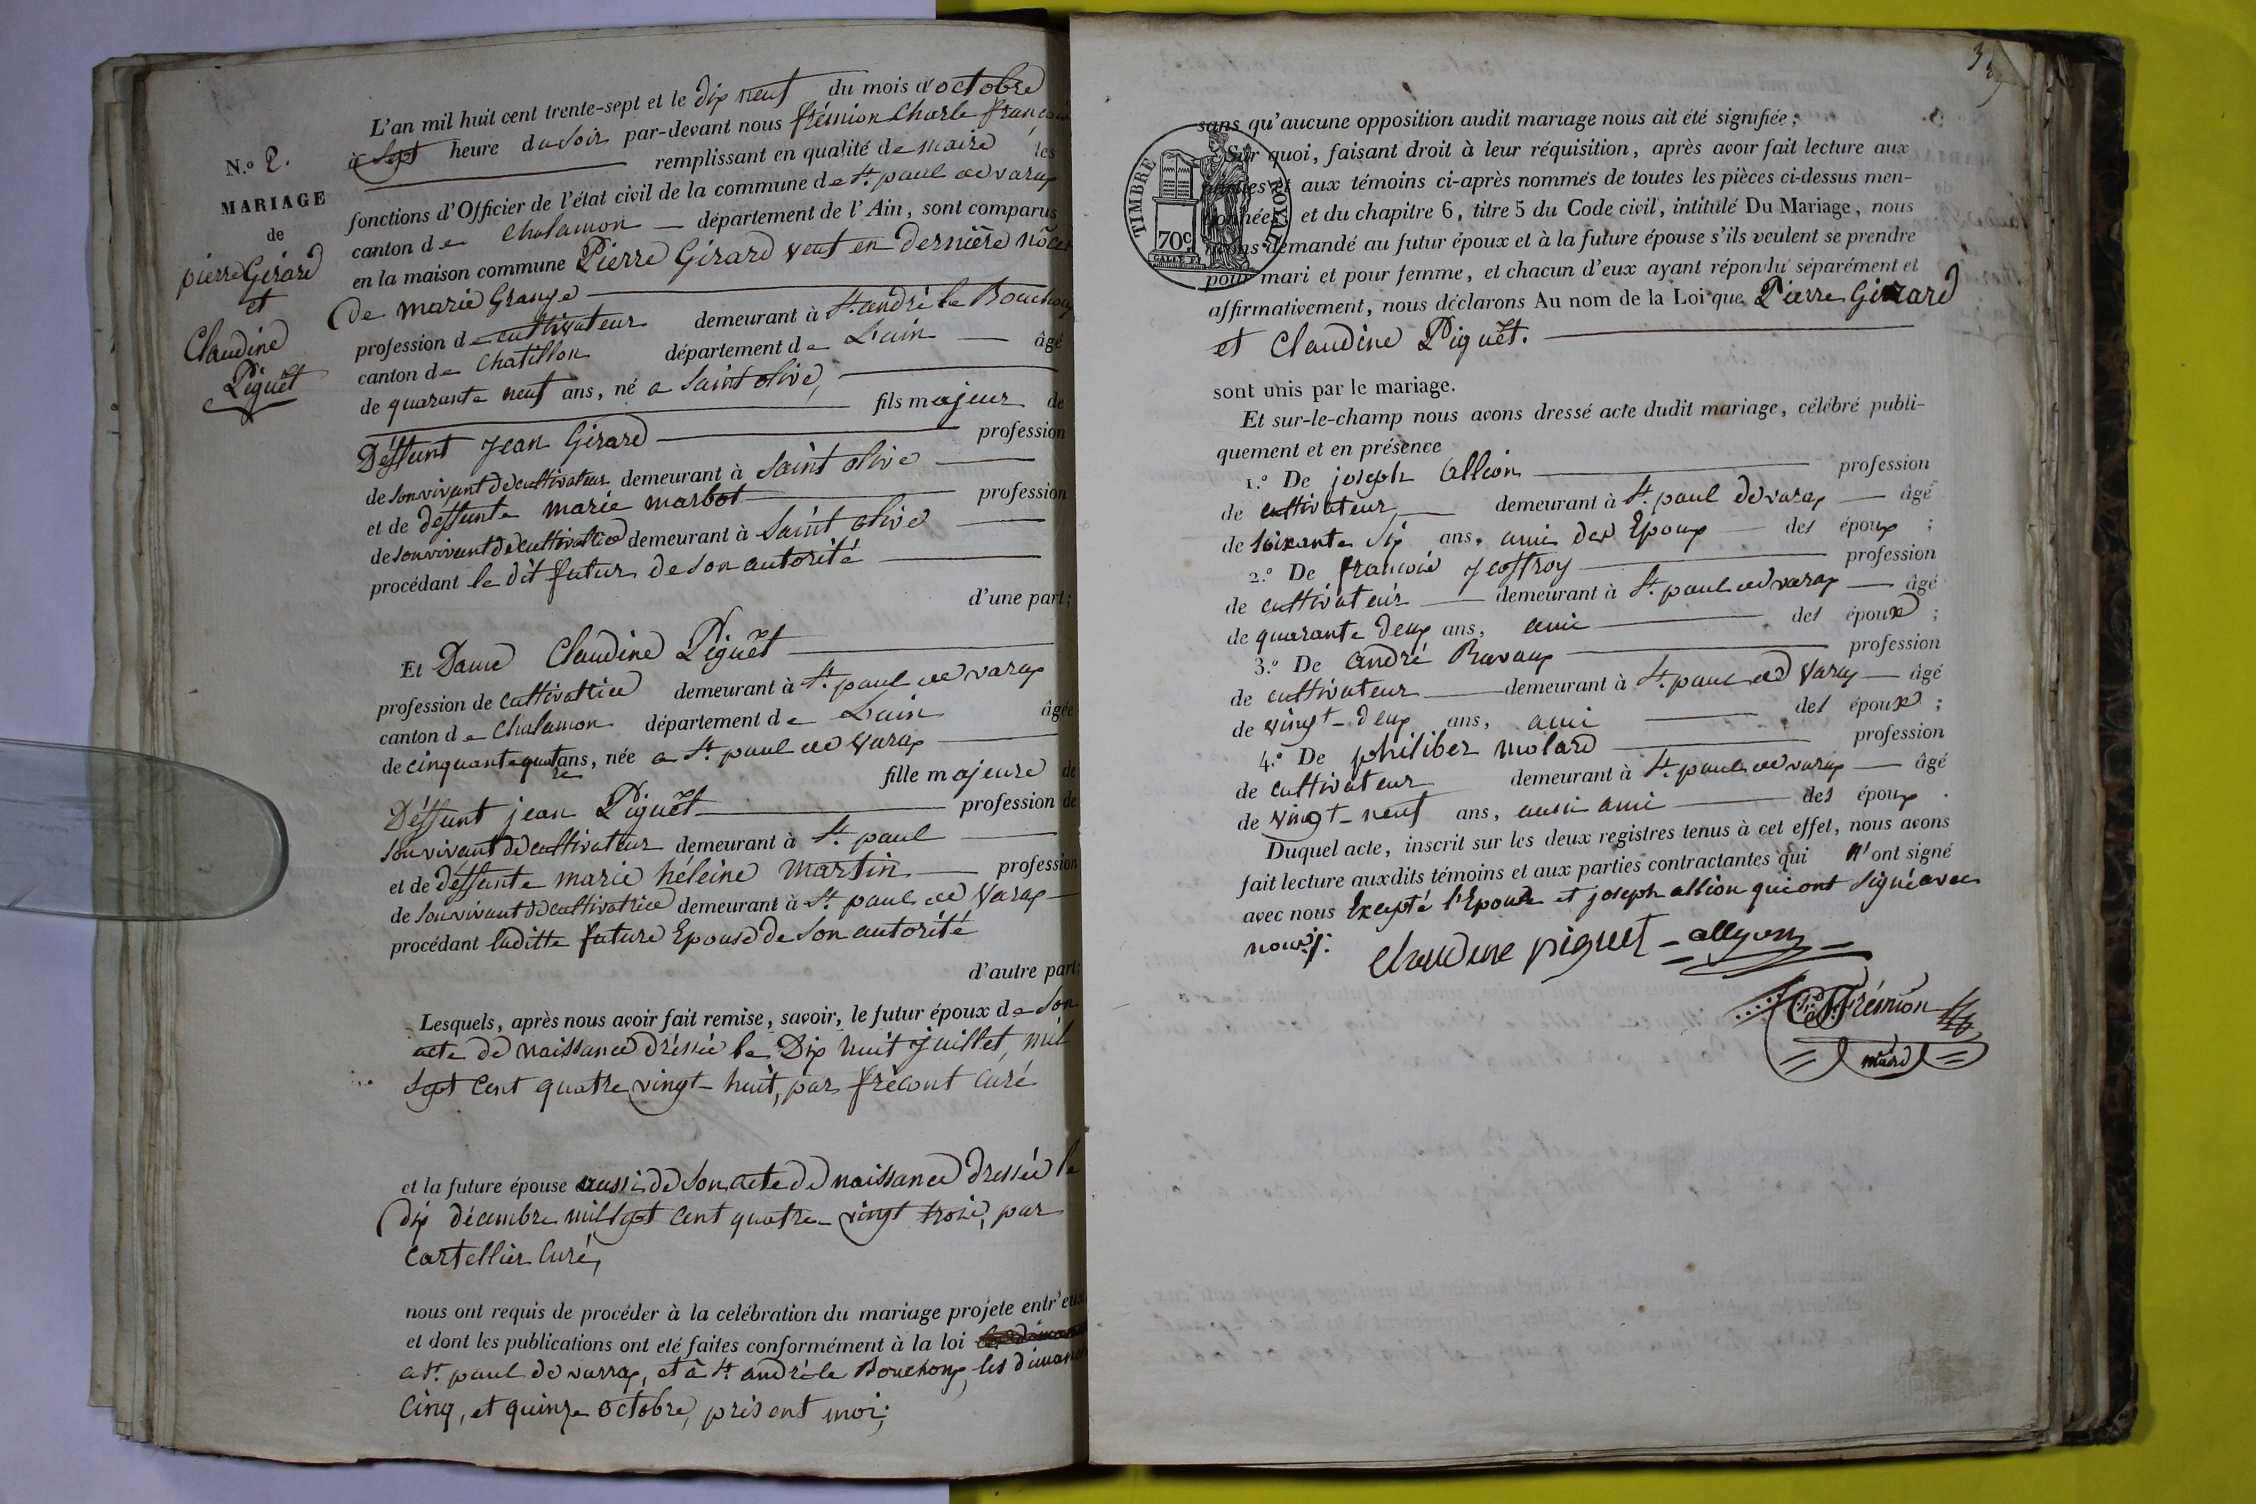 N.o 2.
MARIAGE
de
pierre Girard
et
Claudine
Piguet
L'an mil huit cent trente-sept et le dix neuf du mois d'octobre
à sept heure du soir par-devant nous frémion Charle françois
remplissant en qualité de maire les
fonctions d'Officier de l'état civil de la commune de St. paul de varax
canton de Chalamon département de l'Ain, sont comparus
en la maison commune Pierre Girard veuf en dernière nôces
De marie Grange
profession de cultivateur demeurant à St. andré le Bouchoux
canton de Chatillon département de L'ain âgé
de quarante neuf ans, né a Saint olive,
fils majeur de
Déffunt Jean Girard profession
de son vivant de cultivateur demeurant à Saint olive
et de deffunte marie marbot profession
de son vivant de cultivatrice demeurant à Saint olive
procédant le dit futur de son autorité
d'une part;
Et Dame Claudine Piguet
profession de cultivatrice demeurant à St. paul de varax
canton de Chalamon département de L'ain âgée
de cinquante quatre ans, née a St. paul de Varax
fille majeure de
Déffunt jean Piguet profession de
son vivant de cultivateur demeurant à St. paul
et de déffunte marie héleine martin profession
de son vivant de cultivatrice demeurant à St. paul de Varax
procédant laditte future Epouse de son autorité
d'autre part;
Lesquels, après nous avoir fait remise, savoir, le futur époux de son
acte de naissance dréssée le Dix huit juillet, mil
sept cent quatre vingt-huit, par frécont curé
et la future épouse aussi de son acte de naissance dressée le
dix décembre mil sept cent quatre-vingt trois, par
Cartellier curé,
nous ont requis de procéder à la celébration du mariage projete entr'eux
et dont les publications ont eté faites conformément à la loi
a St. paul de varrax, et à St. andré le Bouchoux, les dimanche
Cinq, et quinze octobre, présent moi;
3
sans qu'aucune opposition audit mariage nous ait été signifiée;
TIMBRE ROYAL
70c
Sur quoi, faisant droit à leur réquisition, après avoir fait lecture aux
parties et aux témoins ci-après nommés de toutes les pièces ci-dessus men-
tionnées, et du chapitre 6, titre 5 du Code civil, intitulé Du Mariage, nous
avons demandé au futur époux et à la future épouse s'ils veulent se prendre
pour mari et pour femme, et chacun d'eux ayant répondu séparément et
affirmativement, nous déclarons Au nom de la Loi que Pierre Girard
et Claudine Piguet.
sont unis par le mariage.
Et sur-le-champ nous avons dressé acte dudit mariage, célébré publi-
quement et en présence
1.o De joseph Allion profession
de cultivateur, demeurant à St. paul de varax âgé
de soixante six ans, ami des Epoux des époux;
2.o De francois Jeoffroy profession
de cultivateur demeurant à St. paul de varax âgé
de quarante deux ans, ami des époux;
3.o De andré Ravaux profession
de cultivateur demeurant à St. paul de Varax âgé
de vingt-deux ans, ami des époux;
4.o De philiber molard profession
de cultivateur demeurant à St. paul de varax âgé
de vingt-neuf ans, aussi ami des époux.
Duquel acte, inscrit sur les deux registres tenus à cet effet, nous avons
fait lecture auxdits témoins et aux parties contractantes qui n'ont signé
avec nous Excepté l'Epouse et joseph allion qui ont signé avec
nous;
claudine piguet allyon
Frémion
maire